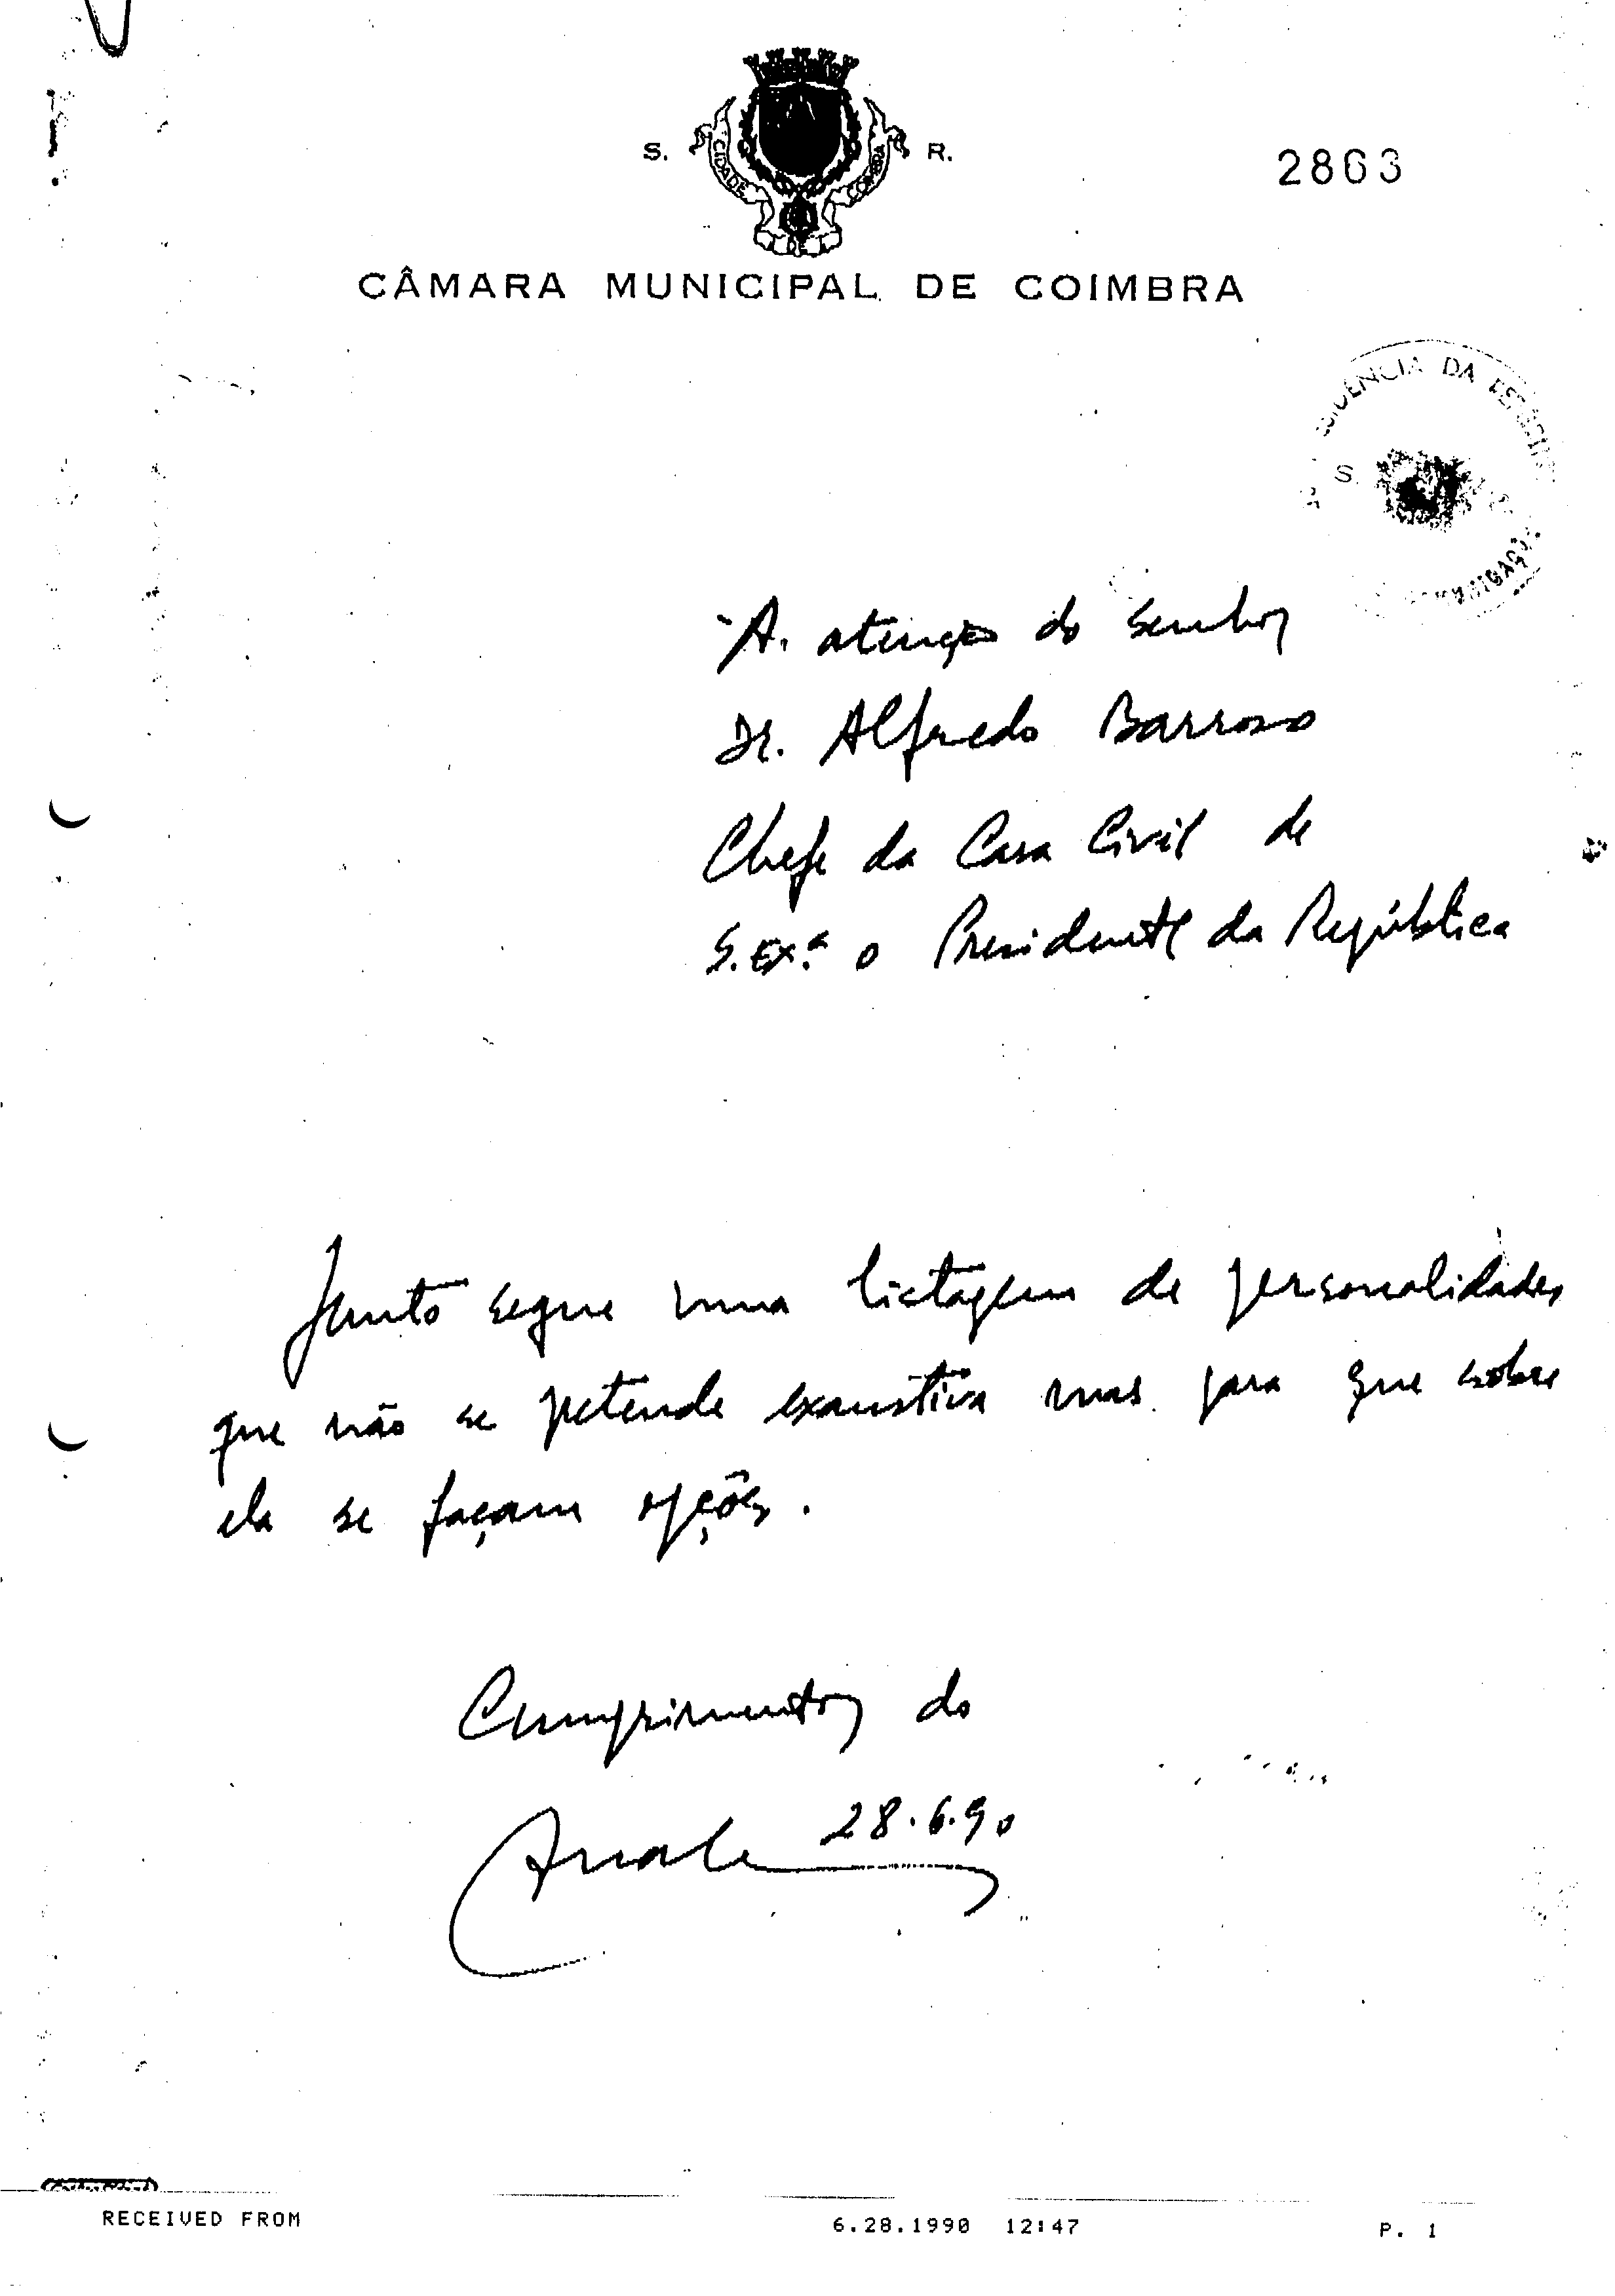 S. R.
CIDADE DE COIMBRA
2863
CÂMARA MUNICIPAL DE COIMBRA
DA
S.
À atenção do Senhor
Dr. Alfredo Barroso
Chefe da Casa Civil de
S. Exª. o Presidente da República
Junto segue uma listagem de personalidades
que não se pretende exaustiva mas para que sobre
ela se façam opções.
Cumprimentos do
28.6.90
RECEIVED FROM 6.28.1990 12:47 P. 1